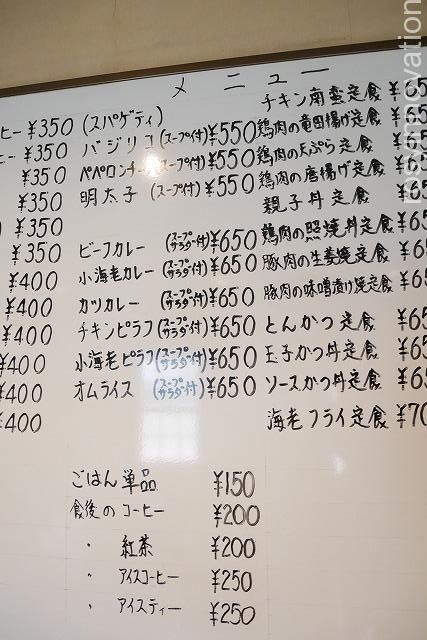 メニュー
ヒー ¥350
ヒー ¥350
¥350
¥350
¥350
¥350
¥400
¥400
¥400
¥400
¥400
¥400
(スパゲティ)
バジリコ (スープ付) ¥550
ペペロンチーノ (スープ付) ¥550
明太子 (スープ付) ¥550
ビーフカレー (スープサラダ付) ¥650
小海老カレー (スープサラダ付) ¥650
カツカレー (スープサラダ付) ¥650
チキンピラフ (スープサラダ付) ¥650
小海老ピラフ (スープサラダ付) ¥650
オムライス (スープサラダ付) ¥650
チキン南蛮定食 ¥65
鶏肉の竜田揚げ定食 ¥65
鶏肉の天ぷら定食 ¥65
鶏肉の唐揚げ定食 ¥65
親子丼定食 ¥65
鶏肉の照焼丼定食 ¥65
豚肉の生姜焼定食 ¥65
豚肉の味噌漬け焼定食 ¥65
とんかつ定食 ¥65
玉子かつ丼定食 ¥65
ソースかつ丼定食 ¥65
海老フライ定食 ¥70
ごはん単品 ¥150
食後のコーヒー ¥200
・ 紅茶 ¥200
・ アイスコーヒー ¥250
・ アイスティー ¥250